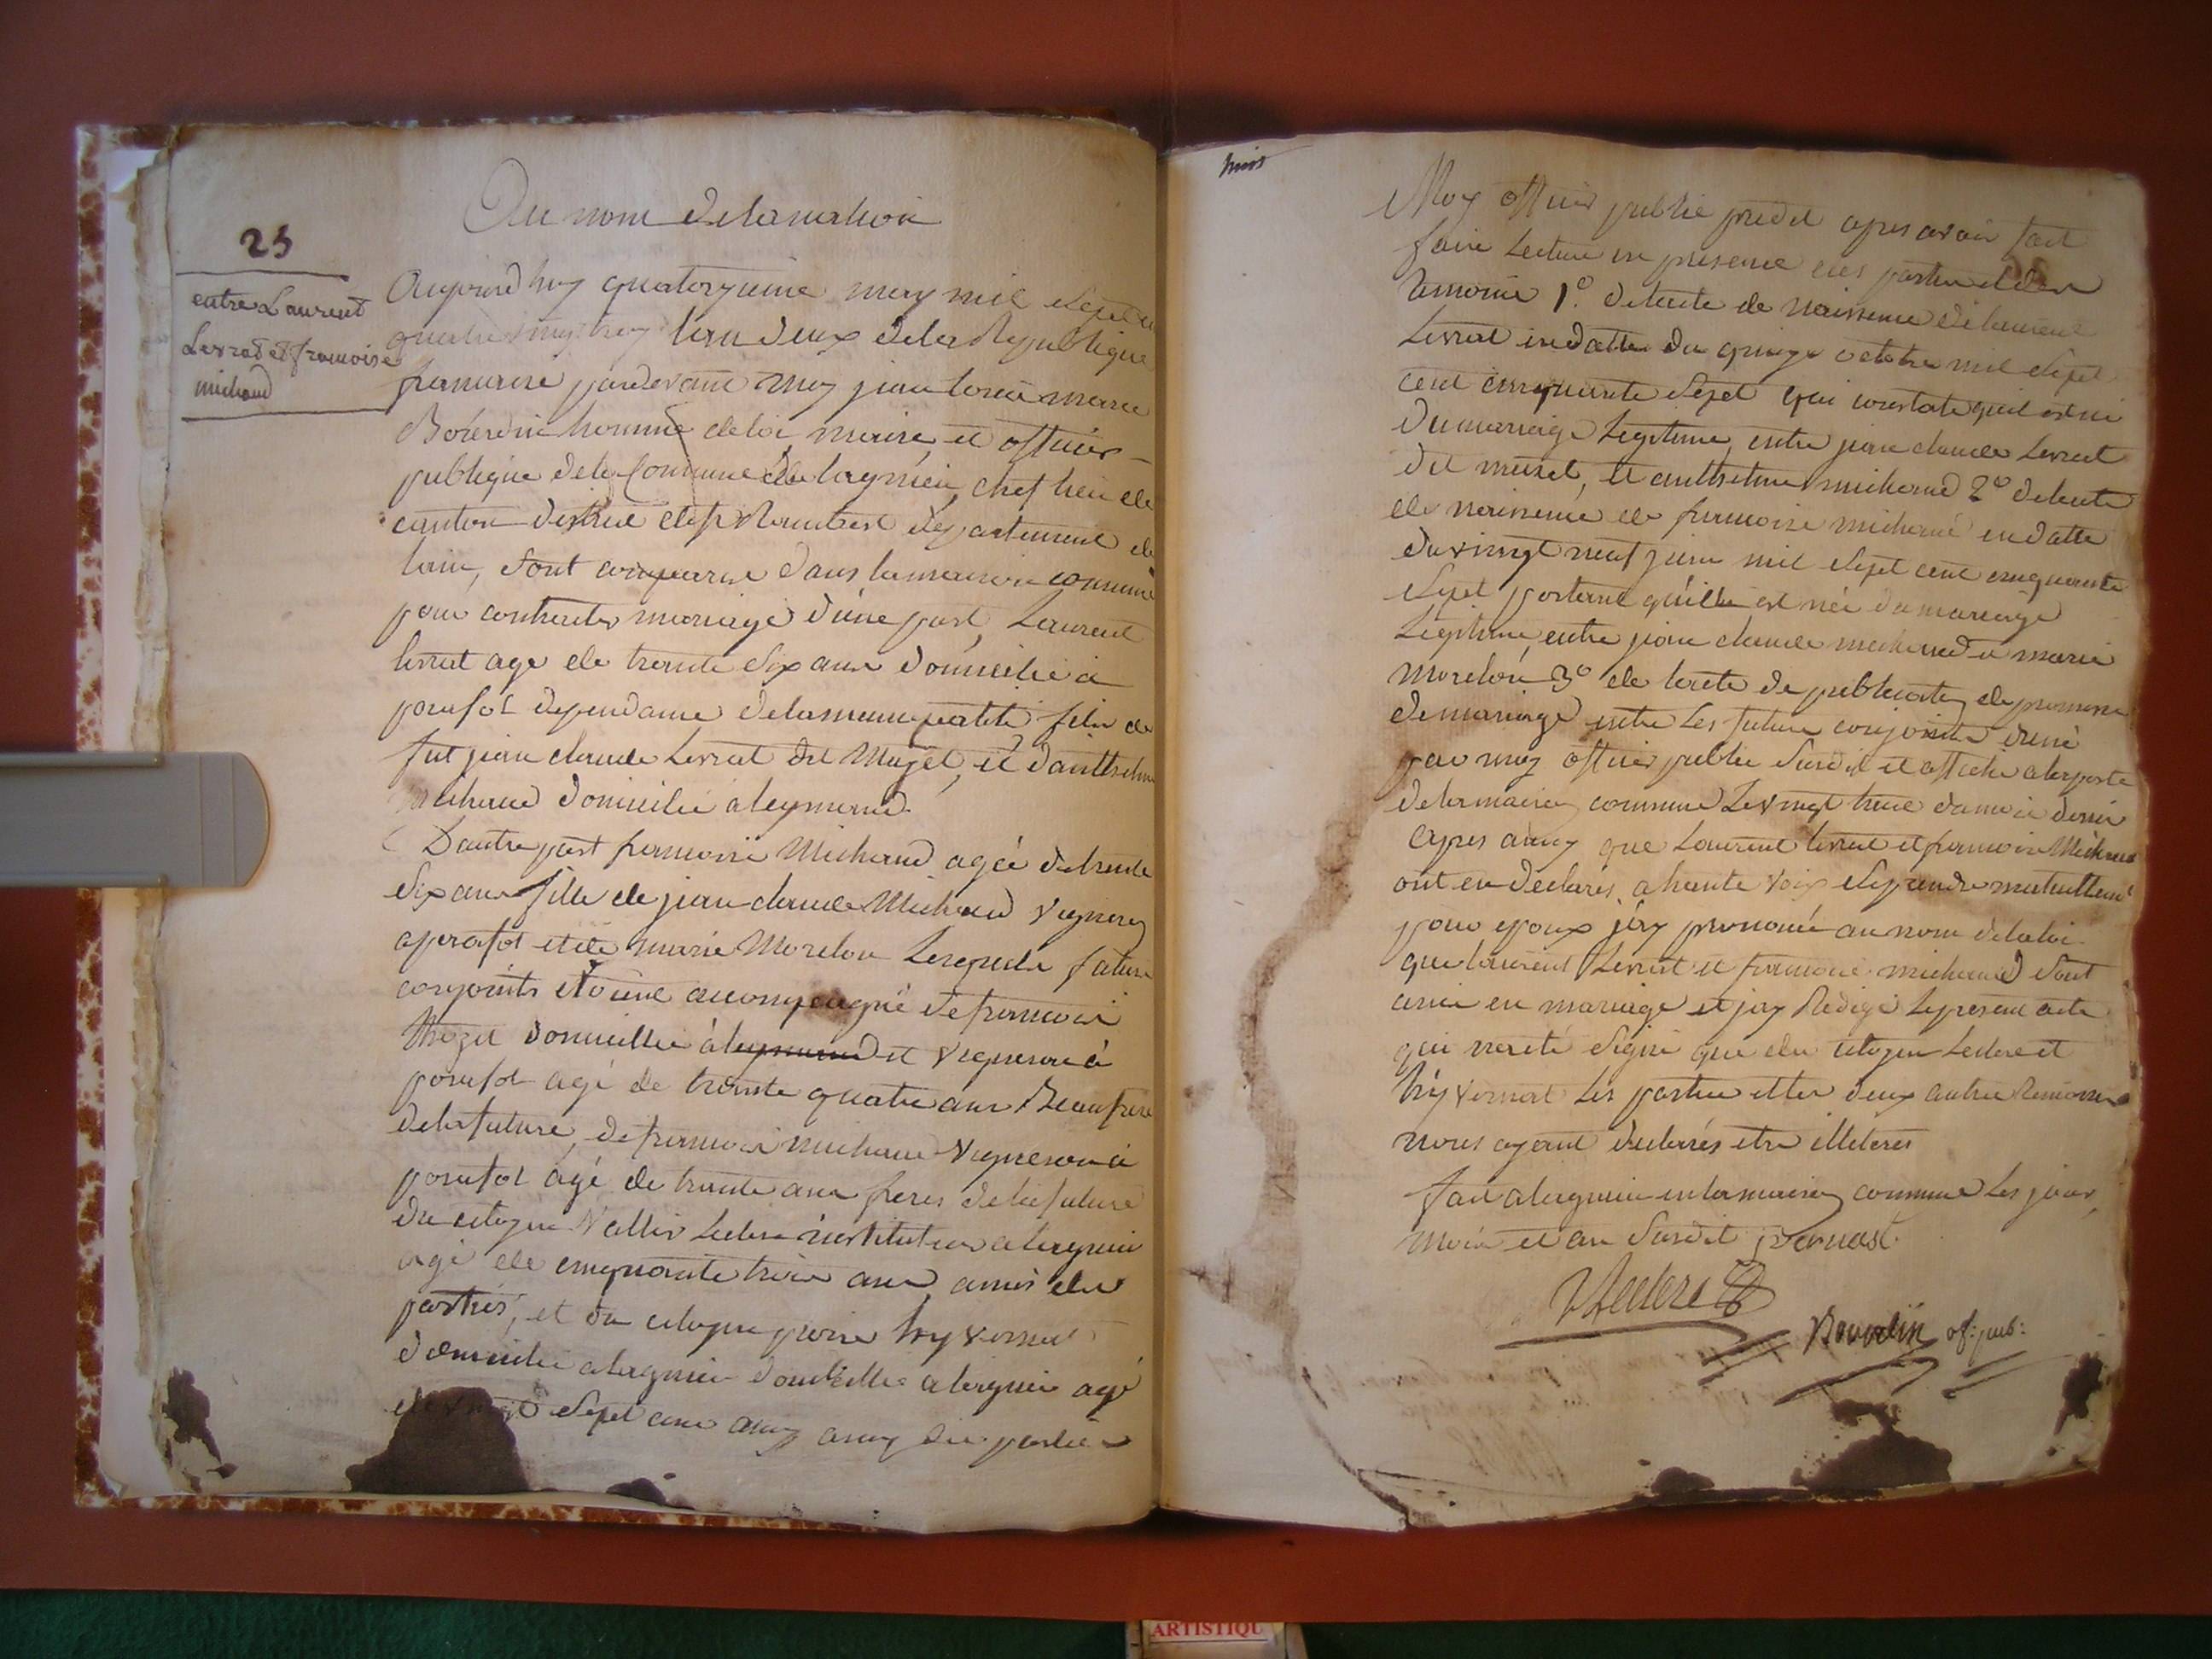 Au nom de la nation
25
entre Laurent
Levrat et francoise
michaud
Aujourd huy quatorzieme may mil sept
quatre vingt trez lan deux de la Republique
francaise pardevant moy jean Louis marie
Bourdin homme de loi maire, et officier
publique de la Commune de lagnieu, chef lieu de
canton district de st Rambert departement de
lain, sont comparus dans la maison commune
pour contracter mariage d'une part, Laurent
levrat age de trente six ans domicilié à
dependance de la municipalité fils de
fut jean claude Levrat dit Muzet, et danthelme
michaud domicilié a leymend.
D'autre part francoise Michaud agée de trente
six ans fille de jean claude Michaud vigneron
a et de marie Morelon Lesquels futurs
conjoints etoient accompagné de francois
domicillié à et vigneron à
agé de trente quatre ans Beaufrere
de la future, de francois michaud vigneron à
agé de trente ans freres de la future
du citoyen Leclerc instituteur a lagnieu
agé de cinquante trois ans amis des
parties, et du citoyen pierre hyvernat
domicilié a lagnieu domicillié a lagnieu agé
de vingt sept ans aussy amy des parties
Moy officier public predit apres avoir fait
faire Lecture en presence des parties et des
temoins 1.º de lacte de naissance de laurent
Levrat en datte du quinze octobre mil sept
cent cinquante sept qui constate qu'il est né
du mariage Legitime entre jean claude Levrat
dit muzet, et anthelme michaud 2º de lacte
de naissance de francoise michaud en datte
du vingt neuf juin mil sept cent cinquante
sept portant qu'elle est née du mariage
Legitime, entre jean claude michaud et marie
Morelon 3º de lacte de publication de promesse
de mariage entre les futurs conjoints
par moy officier public susdit et affiché a la porte
de la maison commune Le vingt du mois dernier
Apres aussy que Laurent levrat et francoise Michaud
ont eu declarés a haute voix se prendre mutuellement
pour epoux j'ay prononcé au nom de la loi
que laurent Levrat et francoise michaud sont
unis en mariage et j'ay Redigé le present acte
qui n'a eté signé que du citoyen Leclerc et
hyvernat Les parties et les deux autres temoins
nous ayant declarés etre illeterés
fait a lagnieu en la maison commune Les jour,
mois et an susdit
Leclerc
Bourdin of: pub:
ARTISTIQU